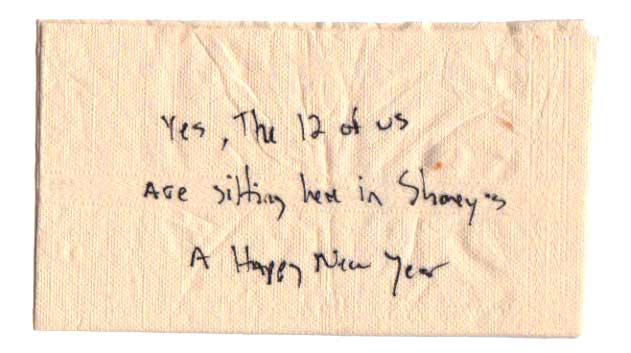 Yes, The 12 of us
Are sitting here in Shoney's
A Happy New Year